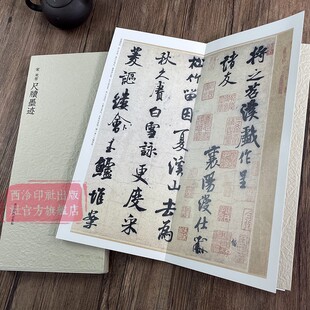 將之苕溪戲作呈
諸友
襄陽漫仕黻
松竹留因夏溪山去為
秋久賡白雪詠更度采
菱謳縷會玉鱸堆案
尺牘墨迹
西泠印社出版
社官方旗舰店